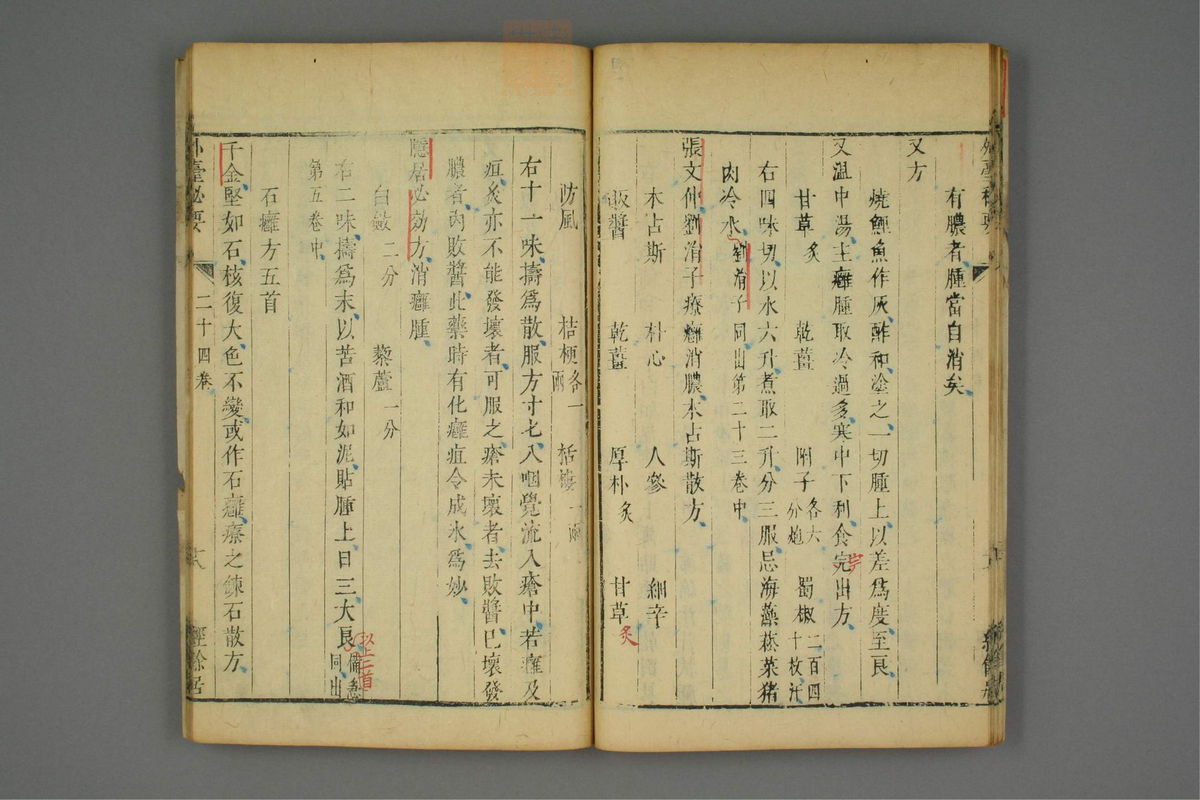 有膿者腫當自消矣
又方
燒鯉魚作灰酢和塗之一切腫上以差為度至良
又溫中湯主癰腫取冷過多寒中下利食完出方
甘草炙 乾薑 附子各六分炮 蜀椒二百四十枚汗
右四味切以水六升煮取二升分三服忌海藻菘菜豬
肉冷水劉涓子同出第二十三卷中
張文仲劉涓子療癰消膿木占斯散方
木占斯 朴心 人參 細辛
敗醬 乾薑 厚朴炙 甘草炙
防風 桔梗各一兩 栝蔞一兩
右十一味擣為散服方寸七入咽覺流入瘡中若癰及
疽灸亦不能發壞者可服之瘡未壞者去敗醬已壞發
膿者內敗醬此藥時有化癰疽令成水為妙
隱居必効方消癰腫
白蘞二分 藜蘆一分
右二味擣為末以苦酒和如泥貼腫上日三大良備急同出
以上二首
第五卷中
石癰方五首
千金堅如石核復大色不變或作石癰療之鍊石散方
外臺祕要 二十四卷 十八 經餘居